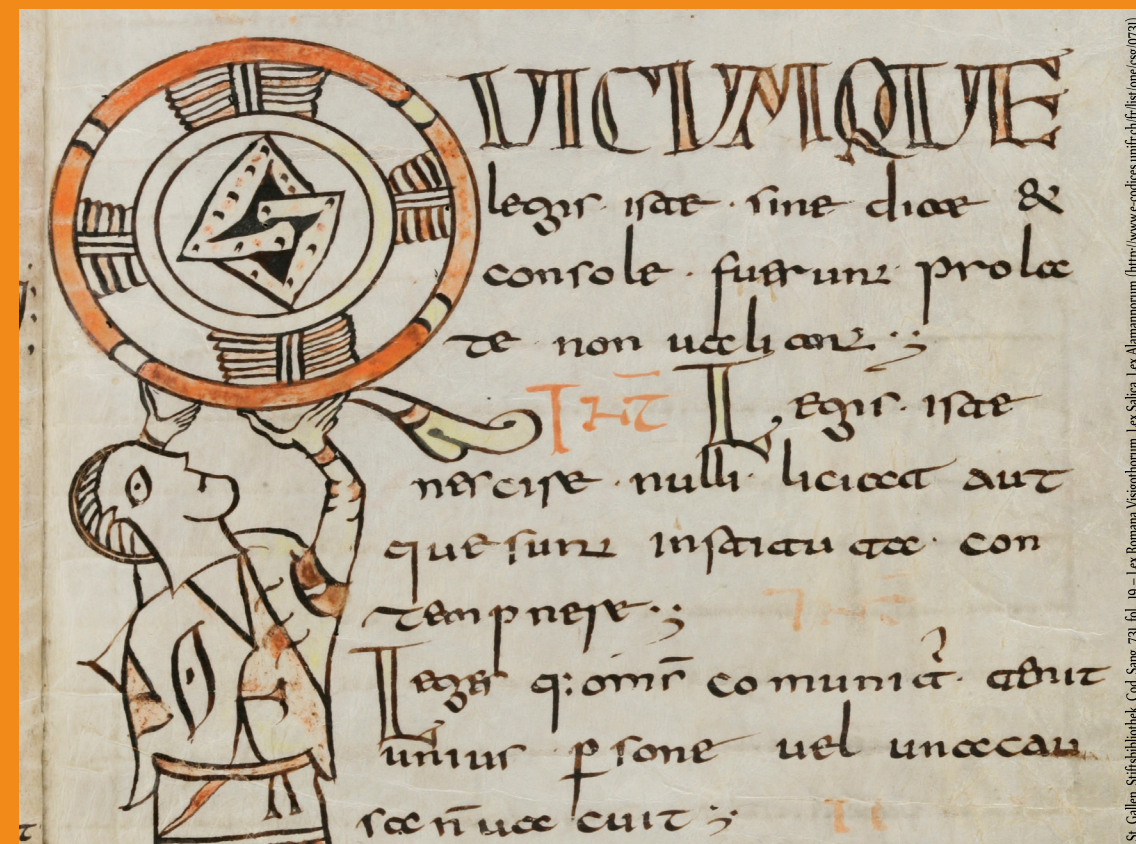 QUICUMQUE
legis iste sine dice &
console fuerunt prola
te non ualiant
INT Legis iste
nescire nulli liciat aut
que sunt instituta con
tempnere
Leges q:
unius psone uel unacau
sa
II
St. Gallen, Stiftsbibliothek, Cod. Sang. 731, fol. 19 – Lex Romana Visigothorum, Lex Salica, Lex Alamannorum (http://www.e-codices.unifr.ch/fr/list/one/csg/0731)